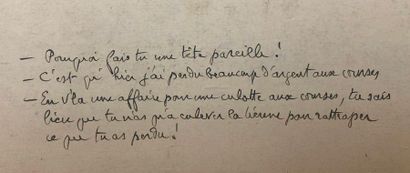 — Pourquoi fais tu une tête pareille !
— C'est qu'hier j'ai perdu beaucoup d'argent aux courses
— En v'la une affaire pour une culotte aux courses, tu sais
bien que tu n'as qu'a enlever la tienne pour rattraper
ce que tu as perdu !